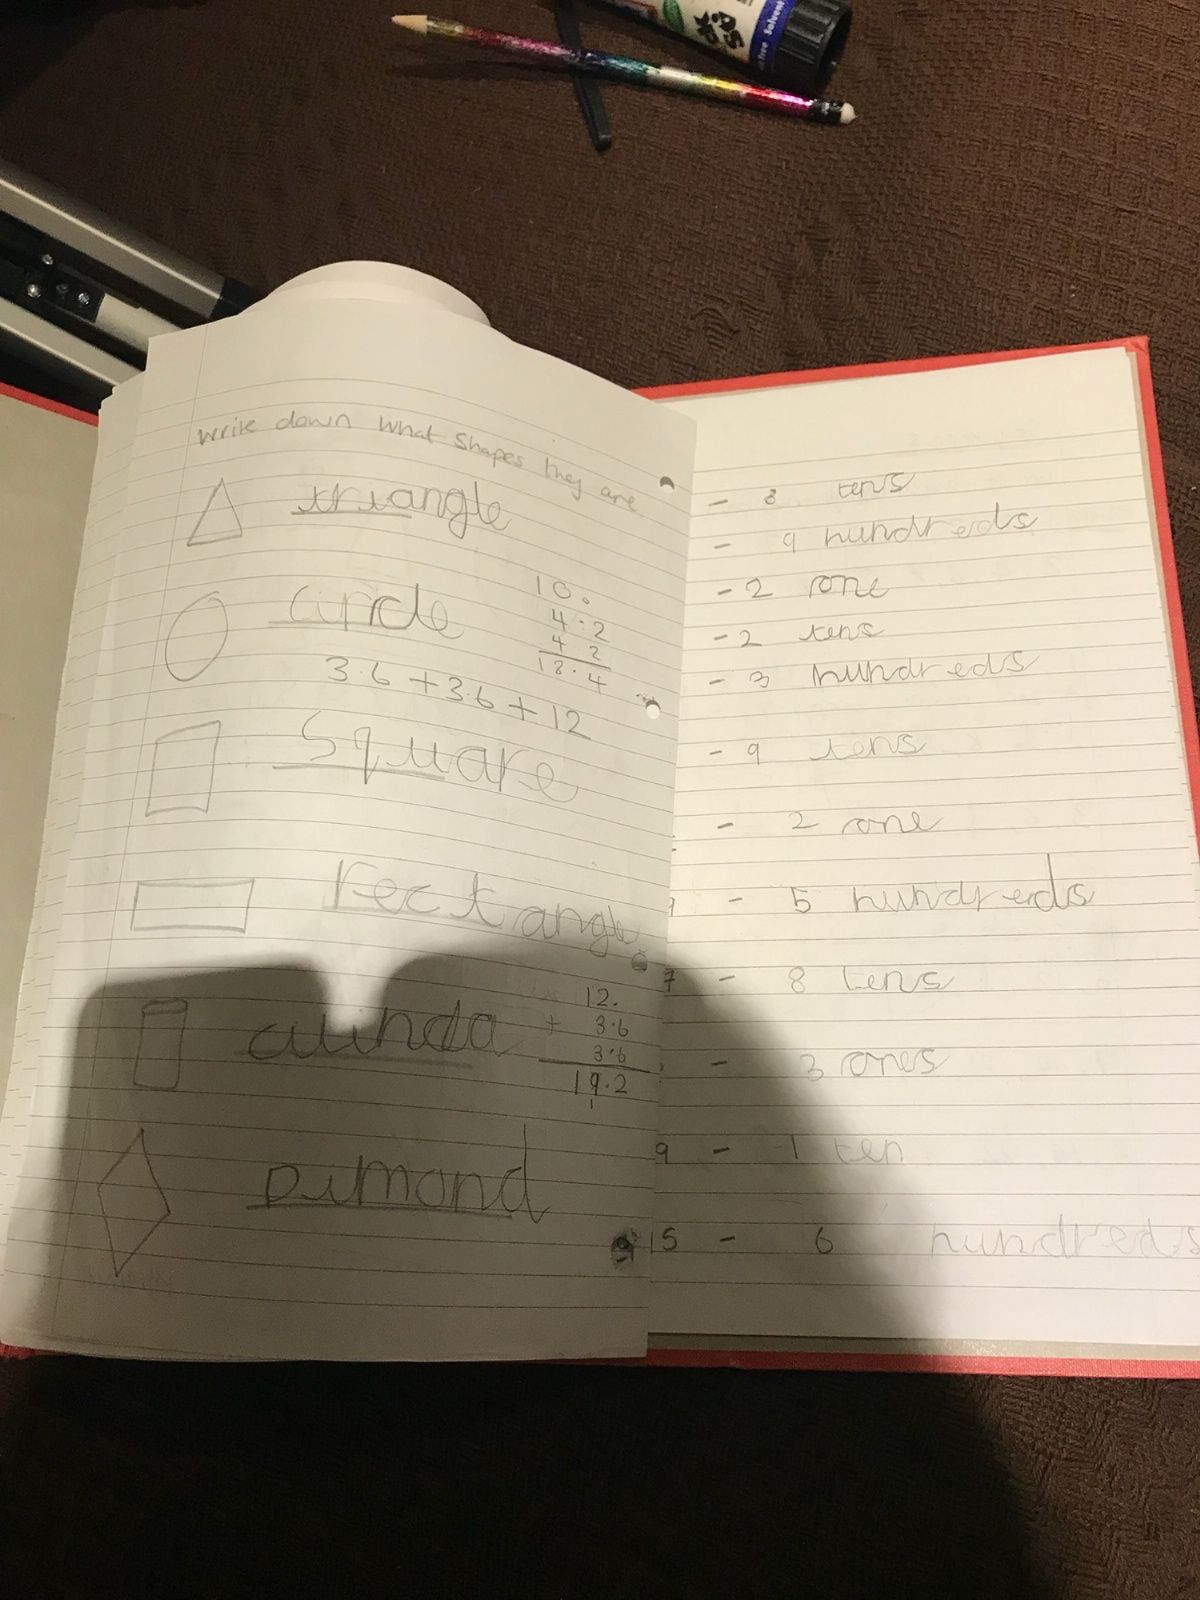 write down what shapes they are
triangle
circle
10.
4.2
4.2
18.4
3.6+3.6+12
Square
rectangle
12.
+ 3.6
3.6
19.2
1
Dimond
- 8 tens
- 9 hundreds
- 2 one
- 2 tens
- 3 hundreds
- 9 tens
- 2 one
- 5 hundreds
7 - 8 tens
- 3 ones
9 - 1 ten
15 - 6 hundreds